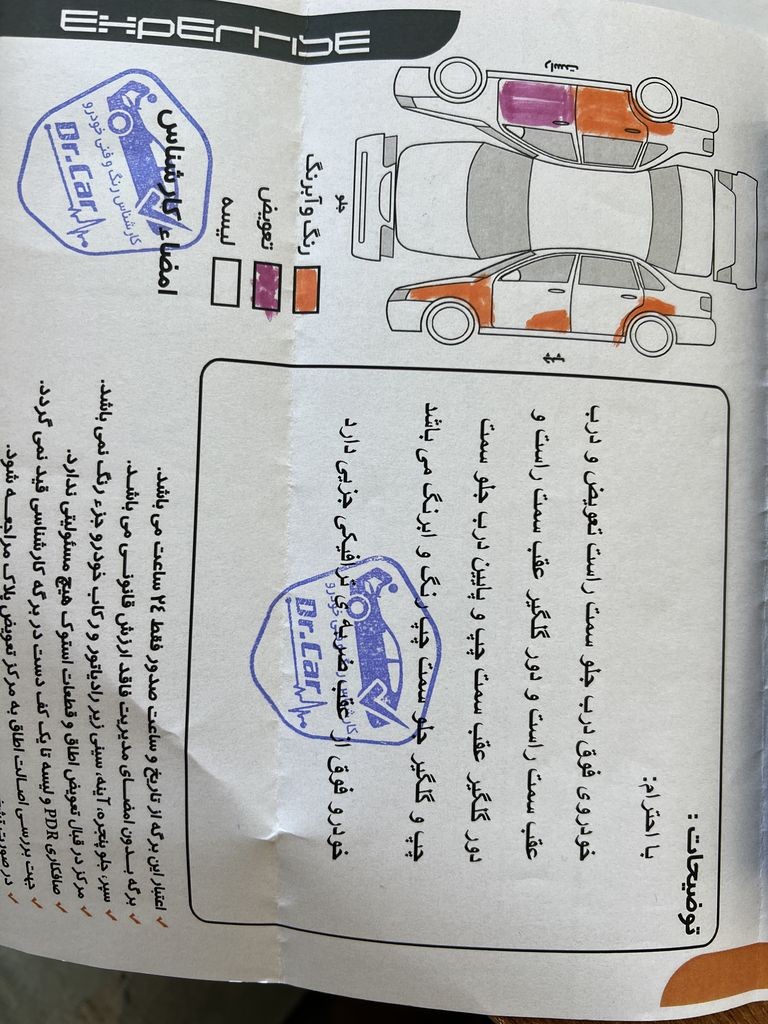 EXPERTISE
راست
جلو
چپ
رنگ و آبرنگ
تعویض
لیسه
امضاء کارشناس
کارشناس رنگ و فنی خودرو
Dr.Car
توضیحات :
با احترام:
خودروی فوق درب جلو سمت راست تعویض و درب
عقب سمت راست و دور گلگیر عقب سمت راست و
دور گلگیر عقب سمت چپ و پایین درب جلو سمت
چپ و گلگیر جلو سمت چپ رنگ و ابرنگ می باشد
خودرو فوق از عقب ضربه ی ترافیکی جزیی دارد
کارشناس رنگ و فنی خودرو
Dr.Car
✓ اعتبار این برگه از تاریخ و ساعت صدور فقط ۲۴ ساعت می باشد.
✓ برگه بدون امضای مدیریت فاقد ارزش قانونی می باشد.
✓ سپر، جلو پنجره، آینه، سینی زیر رادیاتور و رکاب خودرو جزء رنگ نمی باشد.
✓ مرکز در قبال تعویض اطاق و قطعات استوک هیچ مسئولیتی ندارد.
✓ صافکاری PDR و لیسه تا یک کف دست در برگه کارشناسی قید نمی گردد.
✓ جهت بررسی اصالت اطاق به مرکز تعویض پلاک مراجعه شود.
✓ در صورت